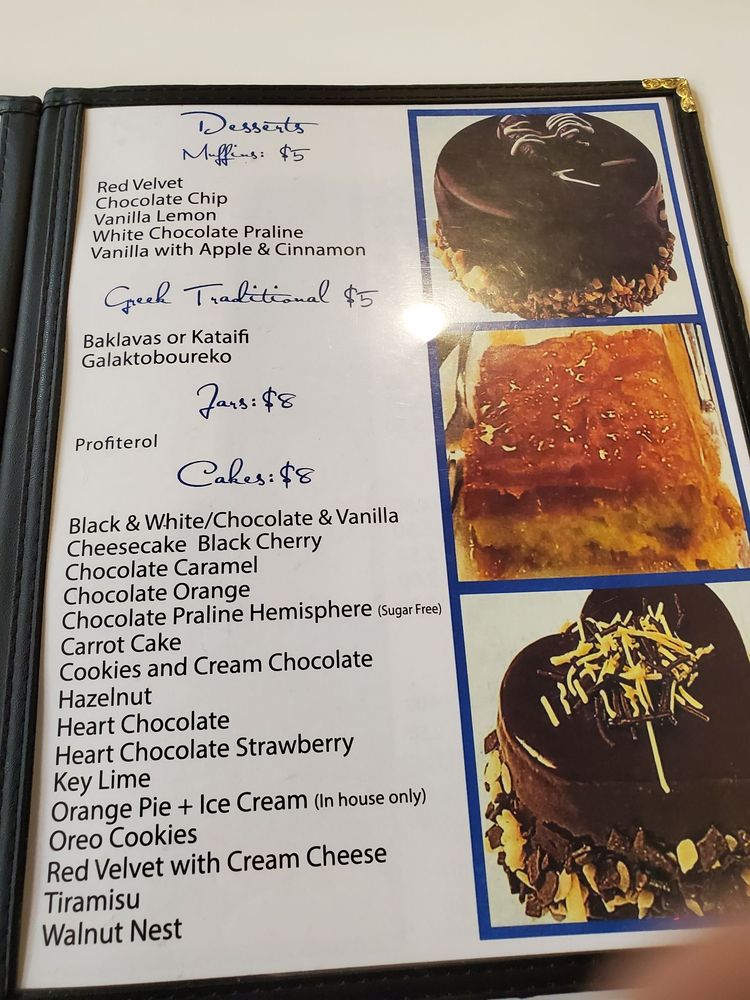 Desserts
Muffins: $5
Red Velvet
Chocolate Chip
Vanilla Lemon
White Chocolate Praline
Vanilla with Apple & Cinnamon
Greek Traditional $5
Baklavas or Kataifi
Galaktoboureko
Jars:$8
Profiterol
Cakes:$8
Black & White/Chocolate & Vanilla
Cheesecake Black Cherry
Chocolate Caramel
Chocolate Orange
Chocolate Praline Hemisphere (Sugar Free)
Carrot Cake
Cookies and Cream Chocolate
Hazelnut
Heart Chocolate
Heart Chocolate Strawberry
Key Lime
Orange Pie + Ice Cream (In house only)
Oreo Cookies
Red Velvet with Cream Cheese
Tiramisu
Walnut Nest